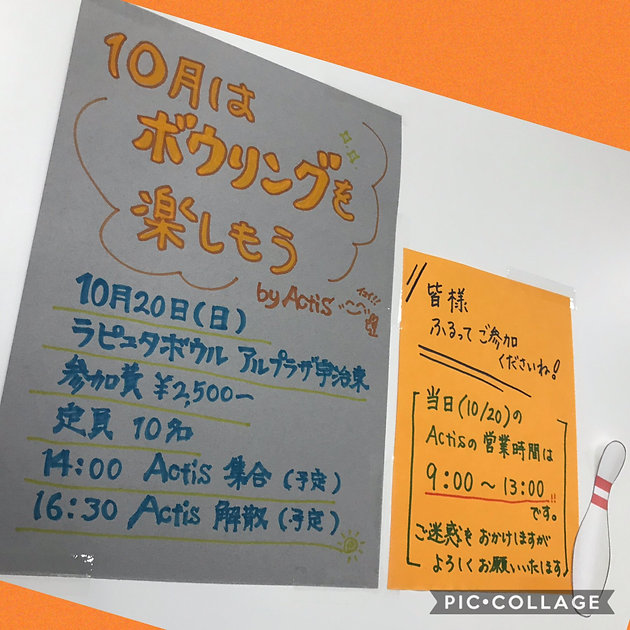 10月は
ボウリングを
楽しもう
by Actis
10月20日(日)
ラピュタボウル アルプラザ宇治東
参加費 ¥2,500-
定員 10名
14:00 Actis 集合 (予定)
16:30 Actis 解散 (予定)
皆様
ふるってご参加
くださいね!
当日(10/20)の
Actisの営業時間は
9:00~13:00
です。
ご迷惑をおかけしますが
よろしくお願いいたします
PIC•COLLAGE